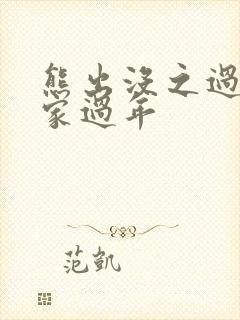 熊出沒之過
家過年
范凱